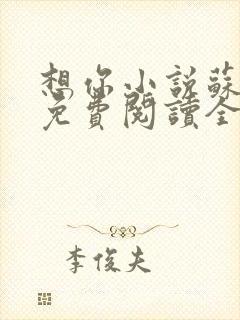 想你小說蘇
免費閱讀全
李俊夫